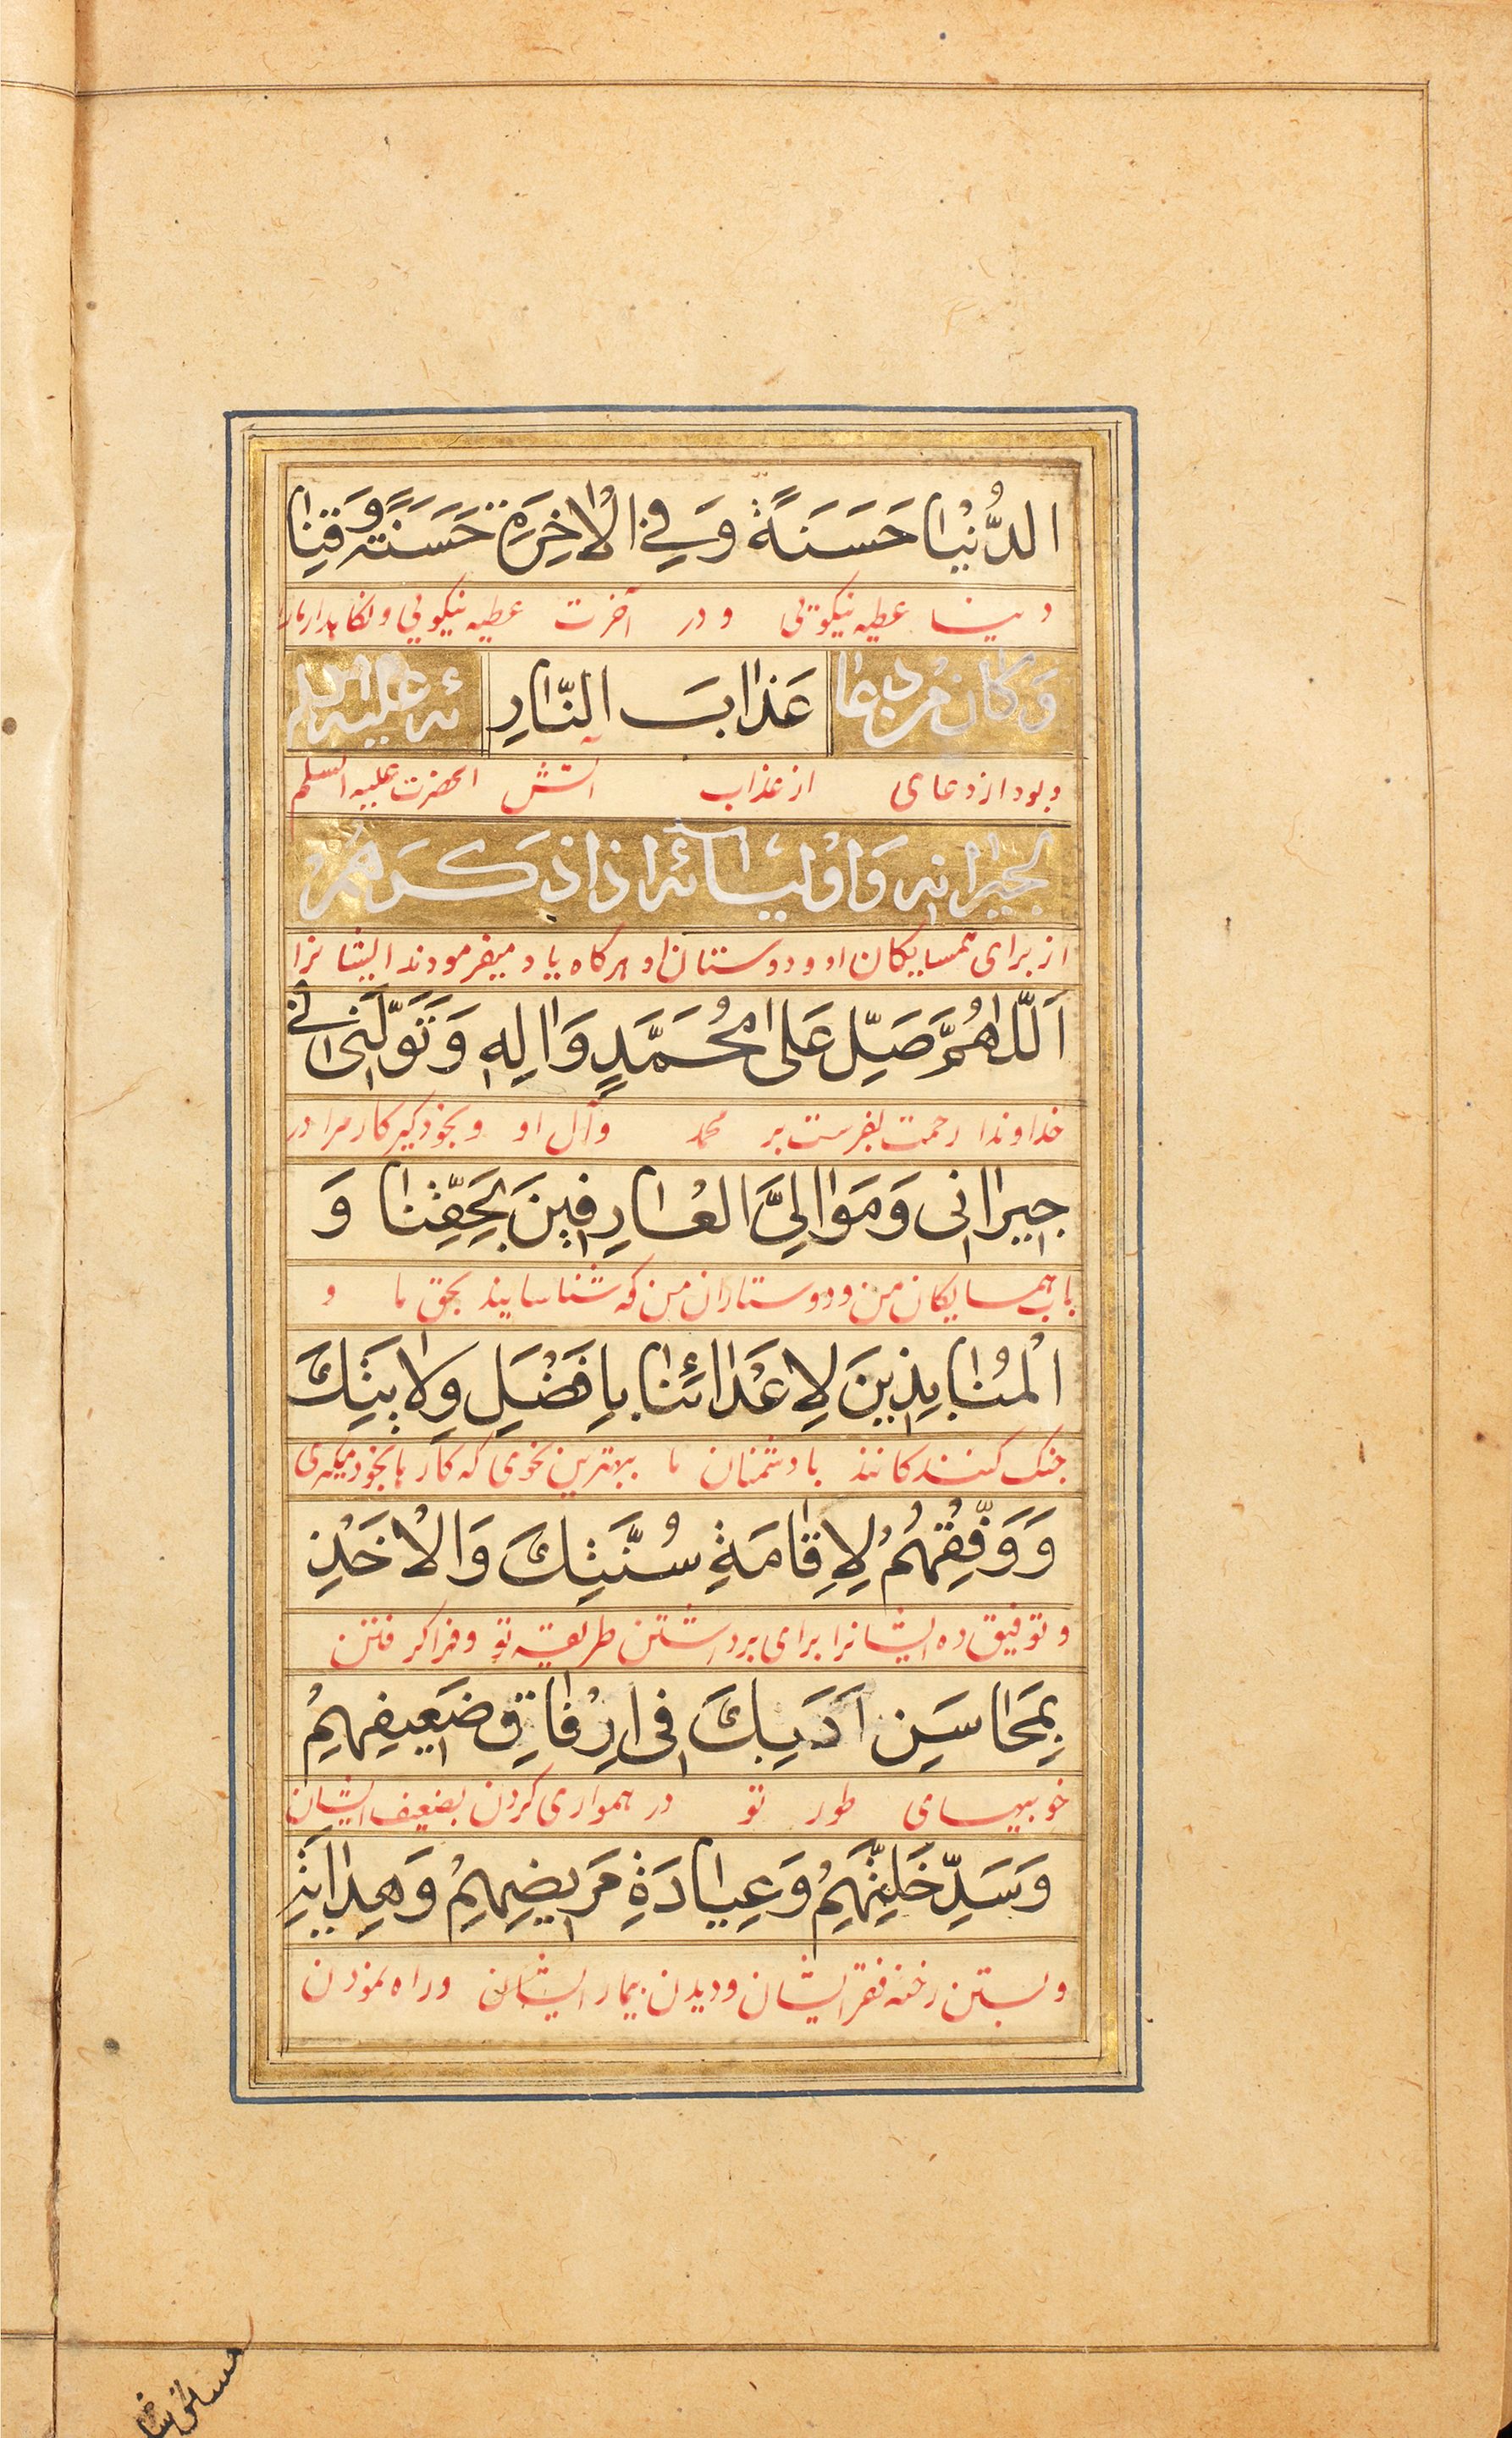 الدُّنْیٰا حَسَنَةً وَفِی الْاٰخِرَةِ حَسَنَةً وَقِنٰا
دنیا عطیه نیکوئی و در آخرت عطیه نیکویی و نکاهدار مارا
وَکٰانَ مِن دُعٰا عَذٰابَ النّٰارِ ئِهِ عَلَیْهِ السَّلٰم
و بود از دعای از عذاب آتش انحضرت علیه السلم
لِجیٖرٰانِهٖ وَاَوْلِیٰائِهِ اِذٰا ذَکَرَهُمْ
از برای همسایکان او و دوستان او هرکاه یاد میفرمودند ایشانرا
اَللّٰهُمَّ صَلِّ عَلیٰ مُحَمَّدٍ وَاٰلِهٖ وَتَوَلَّنیٖ فیٖ
خداوندا رحمت بفرست بر محمد و آل او و بخود کیر کار مرا در
جیٖرٰانیٖ وَمَوٰالِیَّ الْعٰارِفیٖنَ بِحَقِّنٰا وَ
باب همسایکان من و دوستاران من که شناسایند بحق ما و
الْمُنٰابِذیٖنَ لِاَعْدٰائِنٰا بِاَفْضَلِ وَلٰایَتِکَ
جنک کنندکانند با دشمنان ما ببهترین نحوی که کار با بخود میکیری
وَوَفِّقْهُمْ لِاِقٰامَةِ سُنَّتِکَ وَالْاَخْذِ
و توفیق ده ایشانرا برای برداشتن طریقه تو و فراکرفتن
بِمَحٰاسِنِ اَدَبِکَ فیٖ اِرْفٰاقِ ضَعیٖفِهِمْ
خوبیهای طور تو در همواری کردن بضعیف ایشان
وَسَدِّ خَلَّتِهِمْ وَعِیٰادَةِ مَریٖضِهِمْ وَهِدٰایَةِ
و بستن رخنه فقر ایشان و دیدن بیمار ایشان و راه نمودن